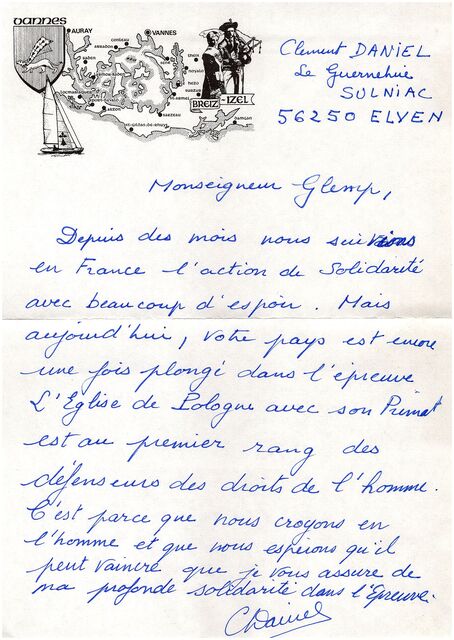 VANNES
AURAY
VANNES
BREIZ-IZEL
SARZEAU
Clement DANIEL
Le Guernehué
SULNIAC
56250 ELVEN
Monseigneur Glemp,
Depuis des mois nous suivons
en France l'action de Solidarité
avec beaucoup d'espoir. Mais
aujourd'hui, votre pays est encore
une fois plongé dans l'épreuve
L'Eglise de Pologne avec son Primat
est au premier rang des
défenseurs des droits de l'homme.
C'est parce que nous croyons en
l'homme et que nous espérons qu'il
peut vaincre que je vous assure de
ma profonde solidarité dans l'Epreuve.
CDaniel